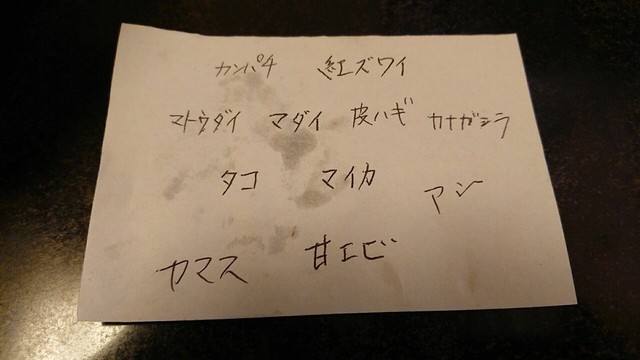 カンパチ 紅ズワイ
マトウダイ マダイ 皮ハギ カナガシラ
タコ マイカ アジ
カマス 甘エビ